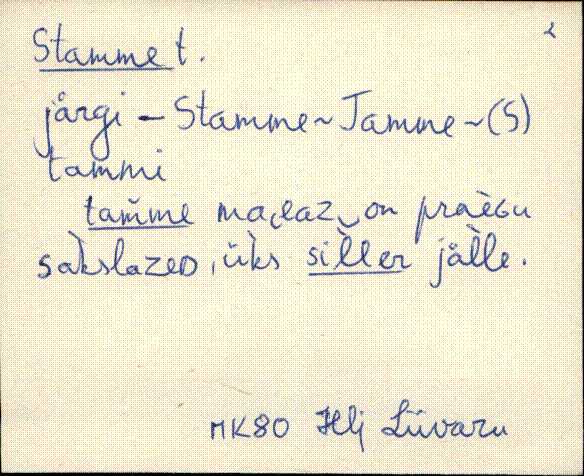 2
Stamme t.
järgi – Stamme ~ Tamme ~ (S)
tammi
tam̆me on praèGu
sàkslazeD, üks sìl̀ler jäl̀le.
MK80 Hlj Liivaru